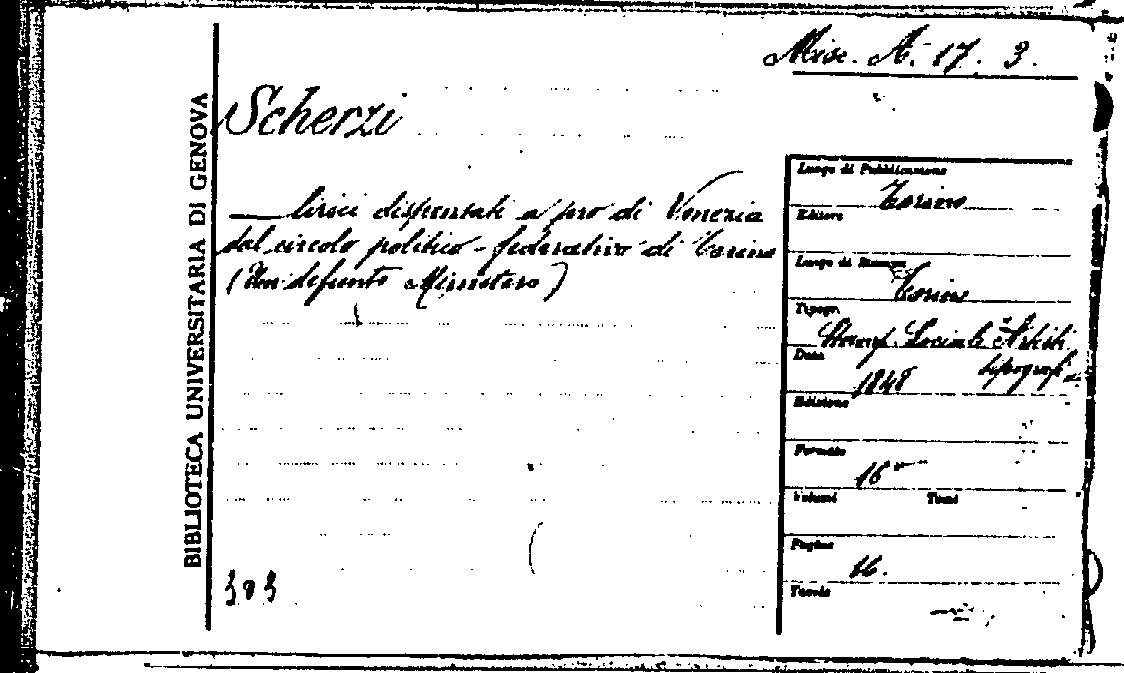 Misc. A. 17. 3.
BIBLIOTECA UNIVERSITARIA DI GENOVA
Scherzi
— lirici dispensati a pro di Venezia
dal circolo politico-federativo di Torino
(Un defunto Ministero)
303
Luogo di Pubblicazione
Torino
Editore
Luogo di Stampa
Torino
Tipogr.
Stamp. Sociale Artisti
tipografi
Data
1848
Edizione
Formato
16°
Volumi Tomi
Pagine
16.
Tavole